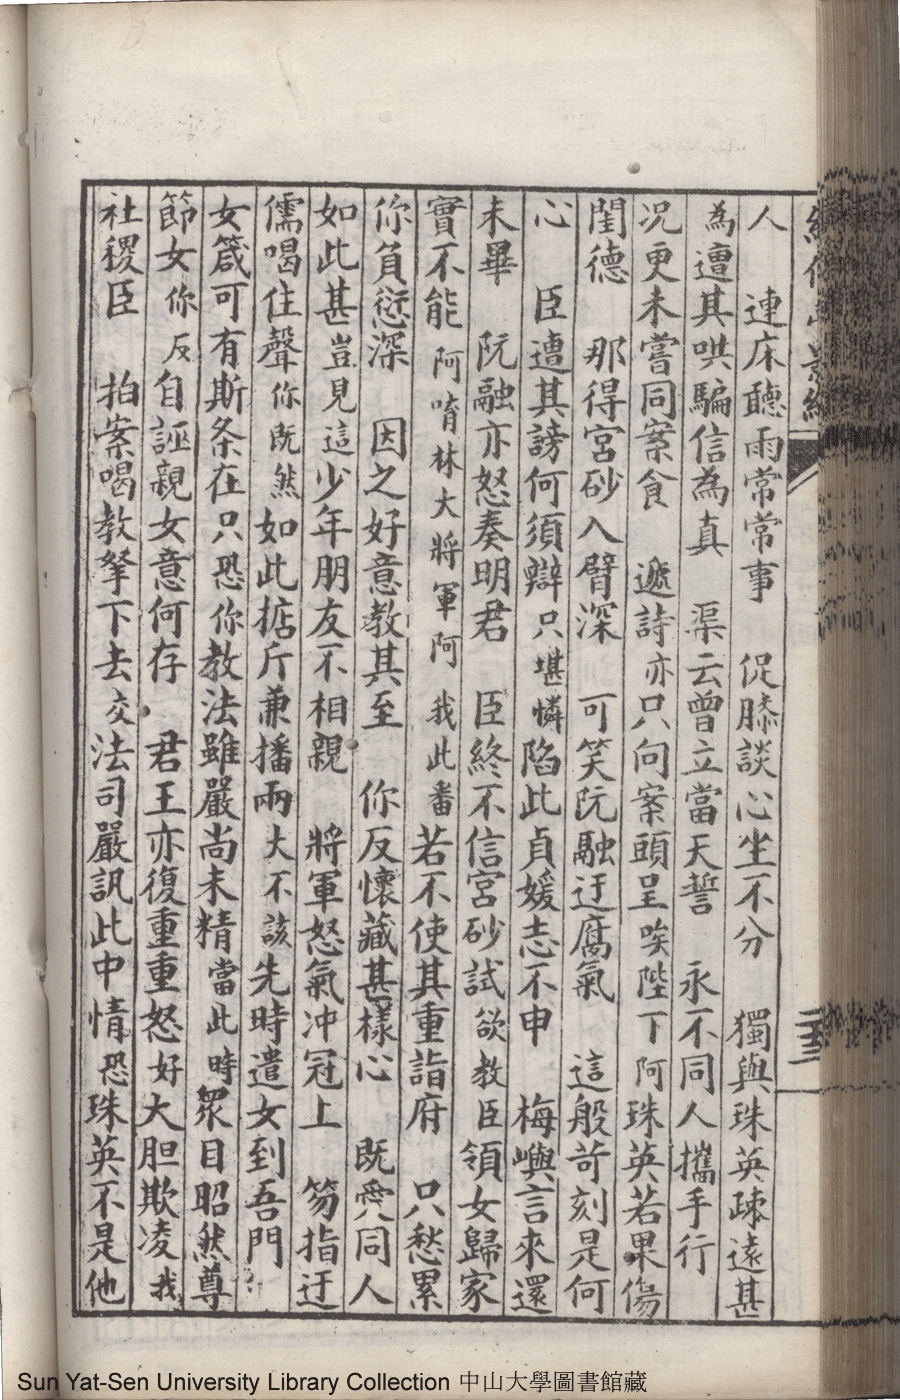 人　連床聽雨常常事　促膝談心坐不分　獨與珠英疎遠甚
為遭其哄騙信為真　渠云曾立當天誓　永不同人攜手行
况更未嘗同案食　遞詩亦只向案頭呈唉陛下阿珠英若果傷
閨德　那得宮砂入臂深　可笑阮融迂腐氣　這般苛刻是何
心　臣遭其謗何須辯只堪憐陷此貞媛志不申　梅嶼言來還
未畢　阮融亦怒奏明君　臣終不信宮砂試欲教臣領女歸家
實不能阿唷林大將軍阿我此番若不使其重詣府　只愁累
你負愆深　因之好意教其至　你反懷藏甚樣心　既愛同人
如此甚豈見這少年朋友不相親　將軍怒氣冲冠上　笏指迂
儒喝住聲你既然如此掂斤兼播兩大不該先時遣女到吾門
女箴可有斯条在只恐你教法雖嚴尚未精當此時眾目昭然尊
節女你反自誣親女意何存　君王亦復重重怒好大胆欺凌我
社稷臣　拍案喝教拏下去交法司嚴訊此中情恐珠英不是他
二三
Sun Yat-Sen University Library Collection 中山大學圖書館藏